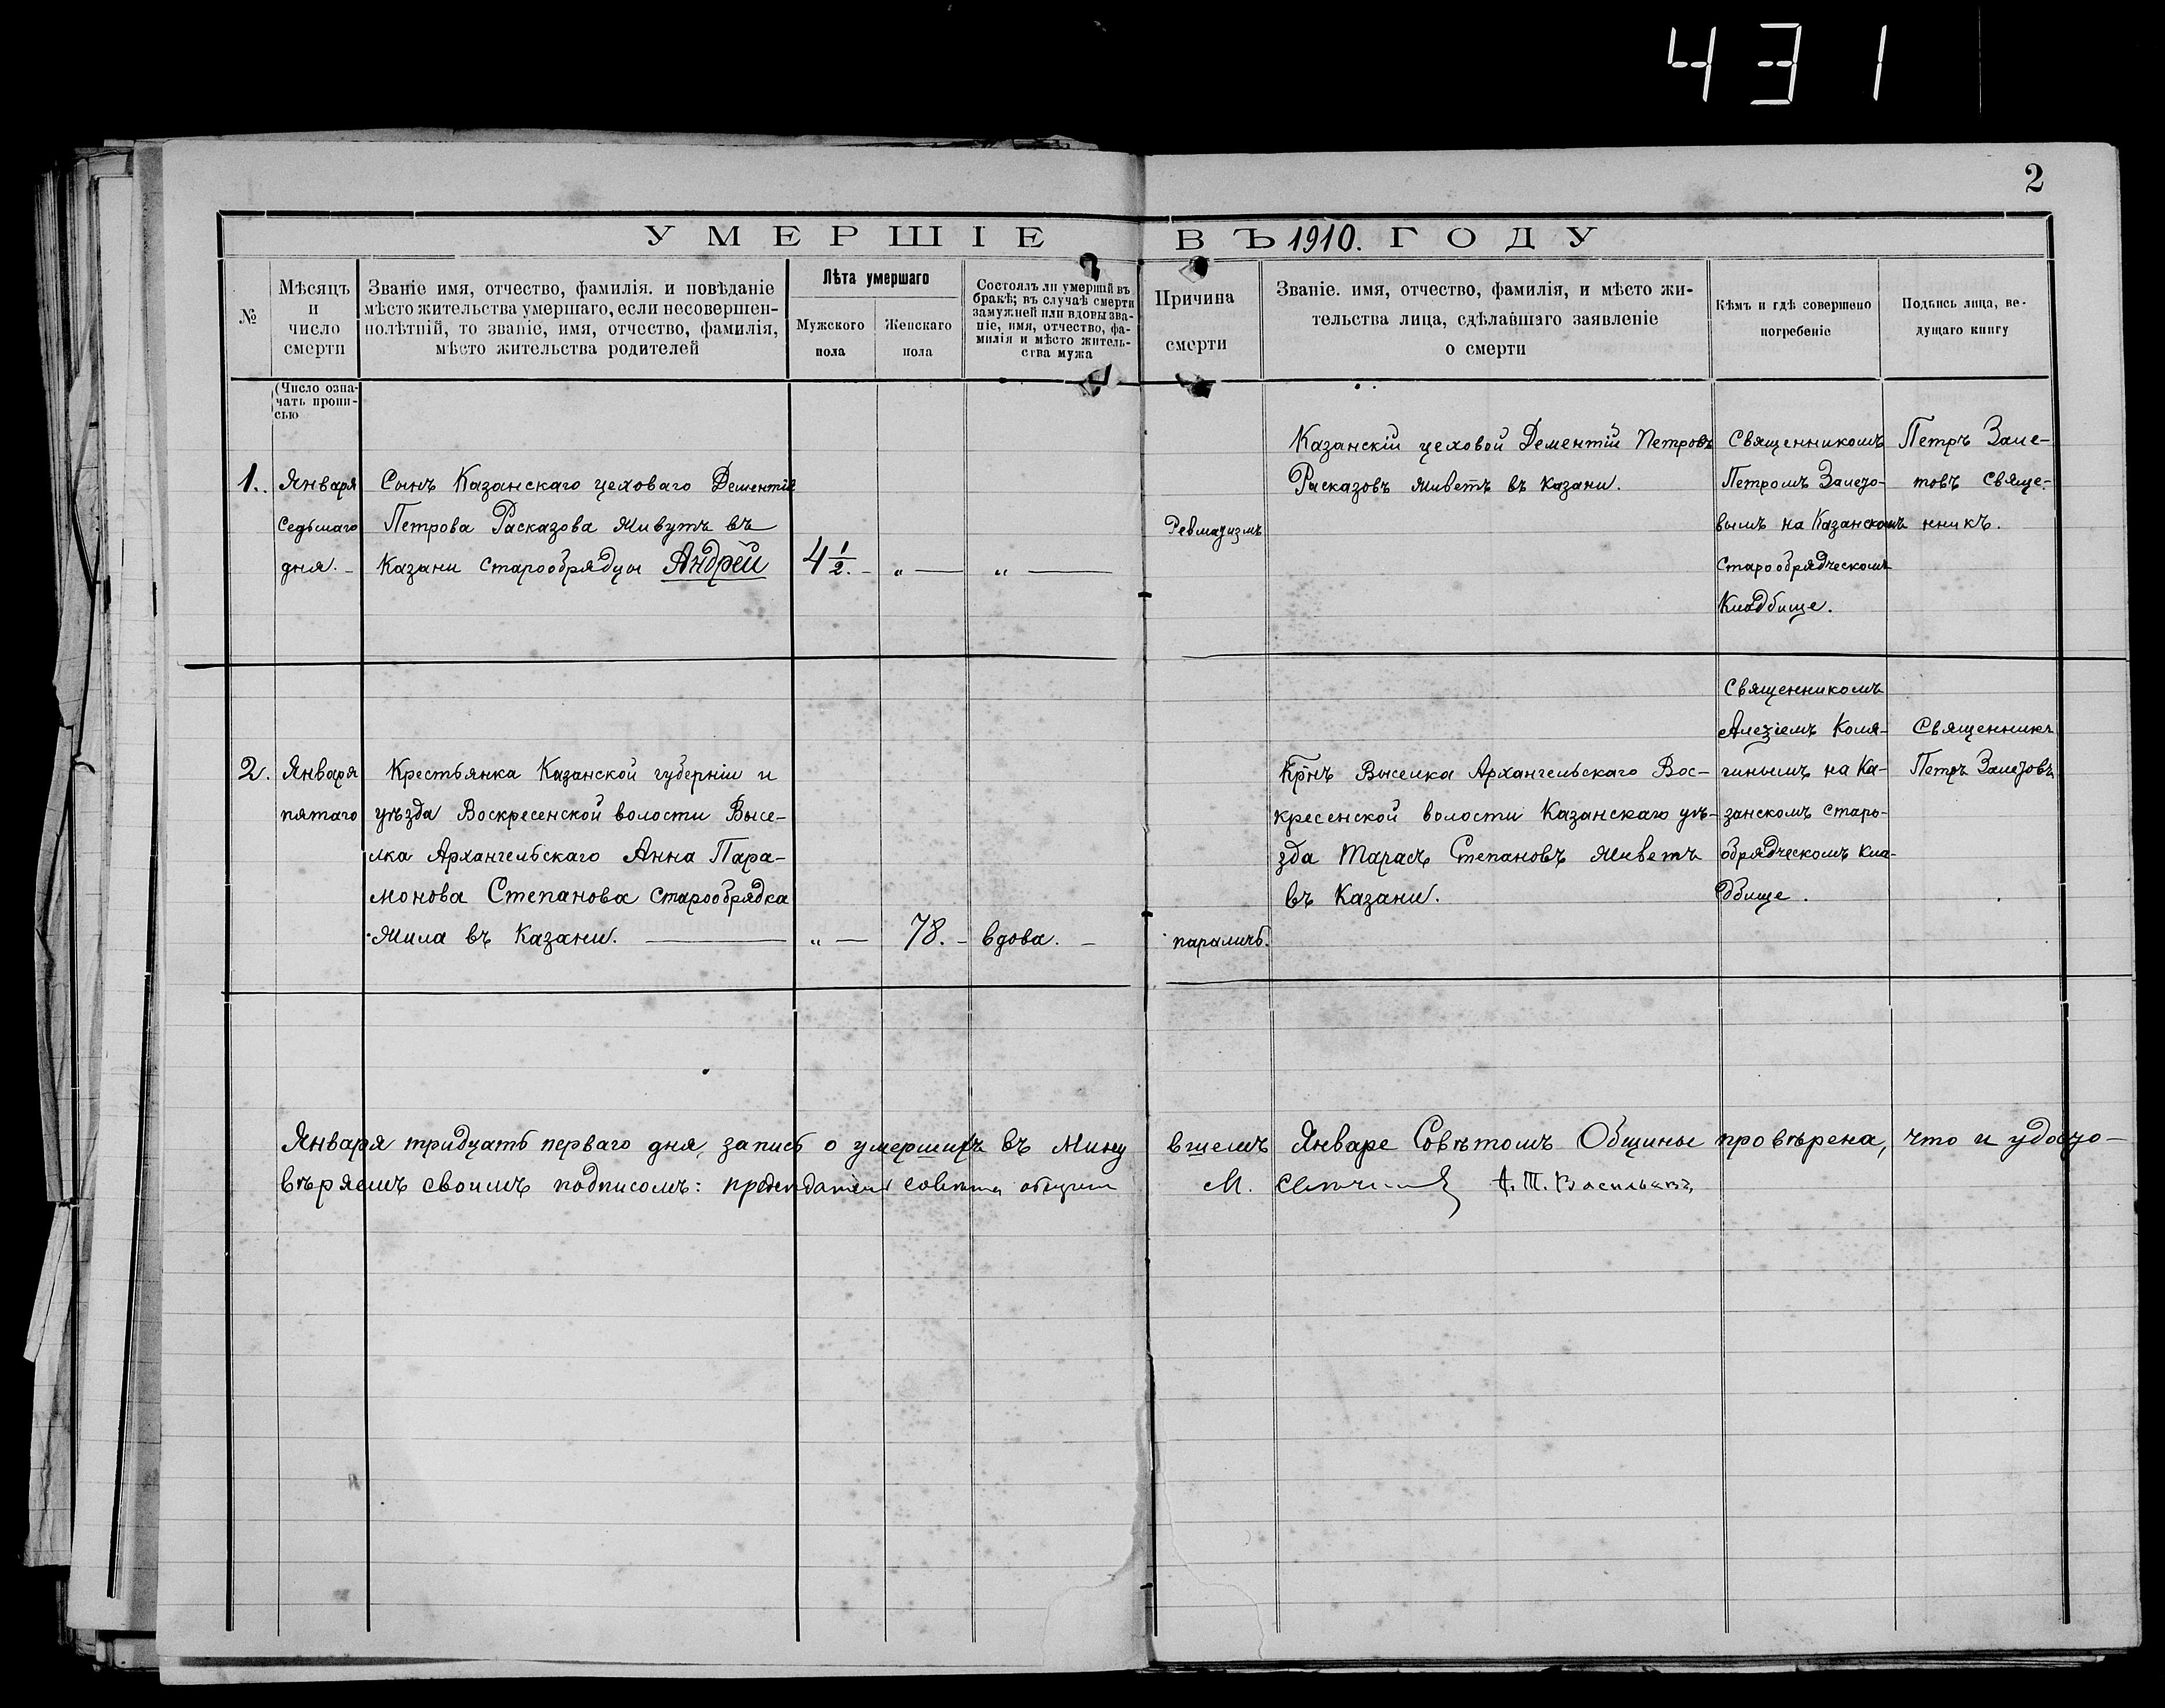 431
2
УМЕРШІЕ ВЪ 1910. ГОДУ
№
Мѣсяцъ
и
число
смерти
Званіе имя, отчество, фамилія. и повѣданіе
мѣсто жительства умершаго, если несовершен-
нолѣтній, то званіе, имя, отчество, фамилія,
мѣсто жительства родителей
Лѣта умершаго
Мужского
пола
Женскаго
пола
Состоялъ ли умершій въ
бракѣ; въ случаѣ смерти
замужней или вдовы зва-
ніе, имя, отчество, фа-
милія и мѣсто житель-
ства мужа
Причина
смерти
Званіе. имя, отчество, фамилія, и мѣсто жи-
тельства лица, сдѣлавшаго заявленіе
о смерти
Кѣмъ и гдѣ совершено
погребеніе
Подпись лица, ве-
дущаго книгу
(Число озна-
чать пропи-
сью
1.
Января
Седьмаго
дня.
Сынъ Казанскаго цеховаго Дементія
Петрова Расказова живутъ въ
Казани старообрядцы Андрей
4 1/2.
„ —
„ —
Ревматизмъ
Казанскій цеховой Дементій Петровъ
Расказовъ живетъ въ Казани.
Священникомъ
Петромъ Залето-
вымъ на Казанскомъ
Старообрядческомъ
Кладбище.
Петръ Зале-
товъ Свяще-
нникъ.
2.
Января
пятаго
Крестьянка Казанской губерніи и
уѣзда Воскресенской волости Высе-
лка Архангельскаго Анна Пара-
монова Степанова старообрядка
жила въ Казани.
„ —
78.
вдова.
параличъ.
Крнъ Выселка Архангельскаго Вос-
кресенской волости Казанскаго уѣ-
зда Тарасъ Степановъ живетъ
въ Казани.
Священникомъ
Алезіемъ Каля-
гинымъ на Ка-
занскомъ старо-
обрядческомъ кла-
дбище.
Священникъ
Петръ Залетовъ
Января тридцать перваго дня, запись о умершихъ въ мину вшемъ Январе Совѣтомъ Общины провѣрена, что и удосто-
вѣряемъ своимъ подписомъ: председатель совета общины М. А. Т. Васильевъ